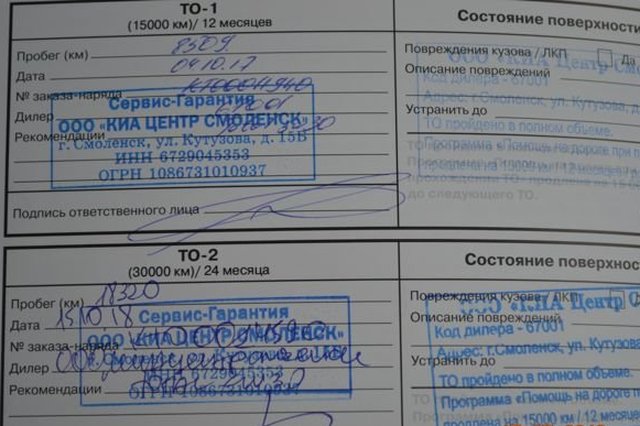 ТО-1
(15000 км)/ 12 месяцев
Состояние поверхности
Пробег (км) 8509
Повреждения кузова / ЛКП Да
Дата 04.10.17
Описание повреждений
№ заказа-наряда
Дилер
Устранить до
Рекомендации
Сервис-Гарантия
ООО «КИА ЦЕНТР СМОЛЕНСК»
г. Смоленск, ул. Кутузова, д. 15В
ИНН 6729045353
ОГРН 1086731010937
ООО «КИА Центр См
Код дилера - 67001
Адрес: г.Смоленск, ул. Кутузова,
ТО пройдено в полном объеме.
Программа «Помощь на дороге при
продлена на 15000 км / 12 месяцев
до следующего ТО.
Подпись ответственного лица
ТО-2
(30000 км)/ 24 месяца
Состояние поверхнос
Пробег (км) 18320
Повреждения кузова / ЛКП
Дата 15.10.18
Описание повреждений
№ заказа-наряда
Дилер
Устранить до
Рекомендации
Сервис-Гарантия
ООО «КИА ЦЕНТР СМОЛЕНСК»
ИНН 6729045353
ОГРН 1086731010937
ООО «КИА Центр С
Код дилера - 67001
Адрес: г.Смоленск, ул. Кутузова
ТО пройдено в полном объеме.
Программа «Помощь на дороге п
продлена на 15000 км / 12 меся